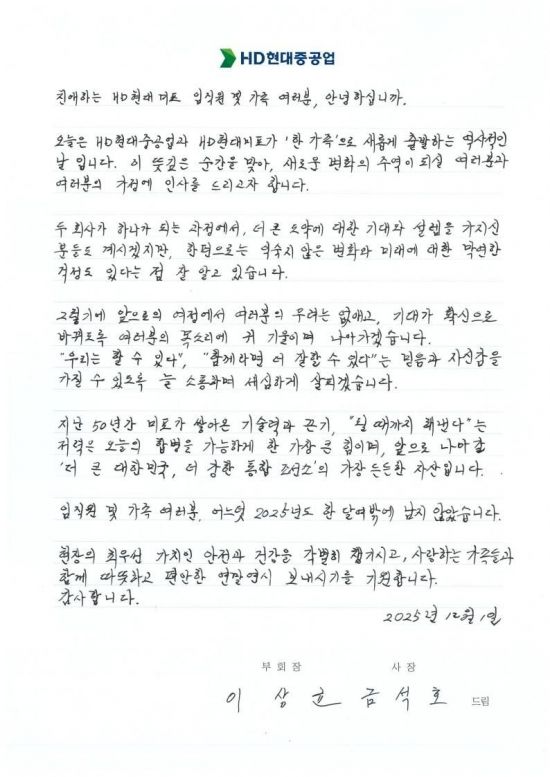 HD현대중공업
친애하는 HD현대미포 임직원 및 가족 여러분, 안녕하십니까.
오늘은 HD현대중공업과 HD현대미포가 '한 가족'으로 새롭게 출발하는 역사적인
날 입니다. 이 뜻깊은 순간을 맞아, 새로운 변화의 주역이 되실 여러분과
여러분의 가정에 인사를 드리고자 합니다.
두 회사가 하나가 되는 과정에서, 더 큰 도약에 대한 기대와 설렘을 가지신
분들도 계시겠지만, 한편으로는 익숙지 않은 변화와 미래에 대한 막연한
걱정도 있다는 점 잘 알고 있습니다.
그렇기에 앞으로의 여정에서 여러분의 우려는 없애고, 기대가 확신으로
바뀌도록 여러분의 목소리에 귀 기울이며 나아가겠습니다.
"우리는 할 수 있다", "함께라면 더 잘할 수 있다"는 믿음과 자신감을
가질 수 있도록 늘 소통하며 세심하게 살피겠습니다.
지난 50년간 미포가 쌓아온 기술력과 끈기, "될 때까지 해낸다"는
저력은 오늘의 합병을 가능하게 한 가장 큰 힘이며, 앞으로 나아갈
'더 큰 대한민국, 더 강한 통합 조선소'의 가장 든든한 자산입니다.
임직원 및 가족 여러분, 어느덧 2025년도 한 달여밖에 남지 않았습니다.
현장의 최우선 가치인 안전과 건강을 각별히 챙기시고, 사랑하는 가족들과
함께 따뜻하고 편안한 연말연시 보내시기를 기원합니다.
감사합니다.
2025년 12월 1일
부회장 사장
이상균 금석호 드림